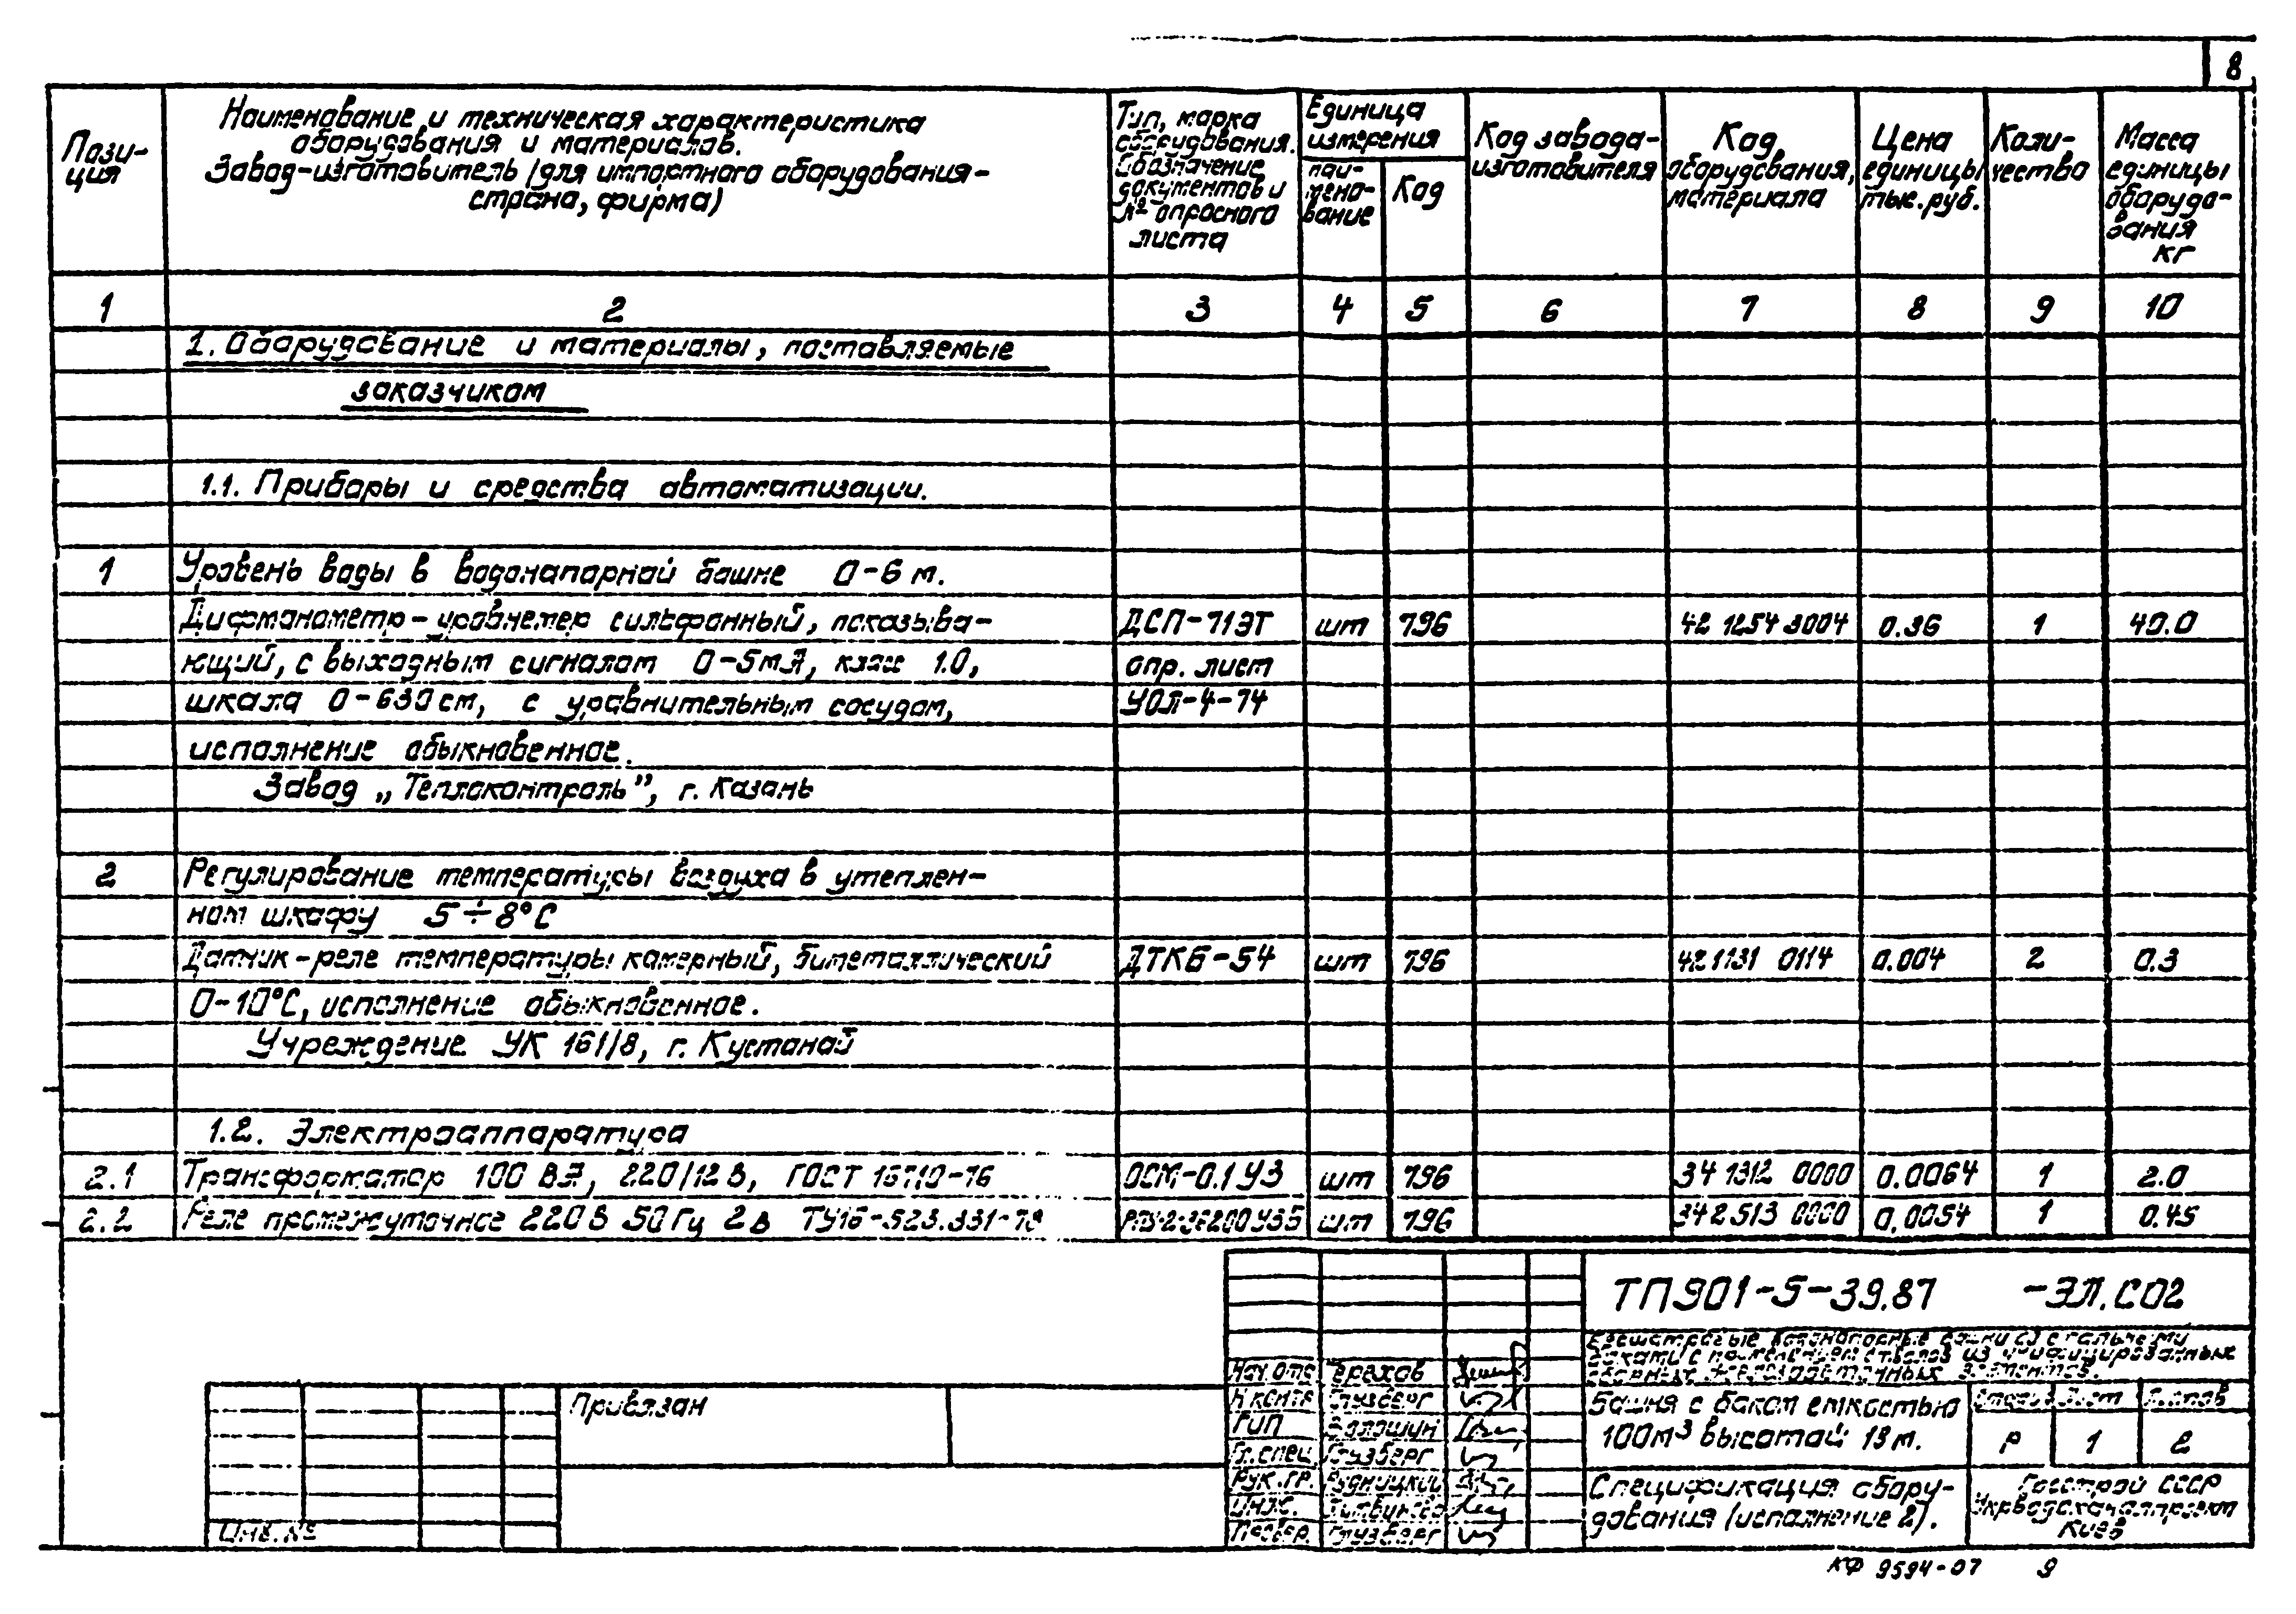 8
Пози-
ция
Наименование и техническая характеристика
оборудования и материалов.
Завод-изготовитель (для импортного оборудования-
страна, фирма)
Тип, марка
оборудования.
Обозначение
документов и
№ опросного
листа
Единица
измерения
наи-
мено-
вание
Код
Код завода-
изготовителя
Код
оборудования,
материала
Цена
единицы
тыс. руб.
Коли-
чество
Масса
единицы
оборудо-
вания
кг
1 2 3 4 5 6 7 8 9 10
1. Оборудование и материалы, поставляемые
заказчиком
1.1. Приборы и средства автоматизации.
1 Уровень воды в водонапорной башне 0-6 м.
Дифманометр-уровнемер сильфонный, показыва- ДСП-71ЭТ шт 796 42 1254 3004 0.36 1 40.0
ющий, с выходным сигналом 0-5мА, класс 1.0, опр. лист
шкала 0-630 см, с уравнительным сосудом, УОЛ-4-74
исполнение обыкновенное.
Завод „Теплоконтроль”, г. Казань
2 Регулирование температуры воздуха в утеплен-
ном шкафу 5÷8°С
Датчик-реле температуры камерный, биметаллический ДТКБ-54 шт 796 42 1131 0114 0.004 2 0.3
0-10°С, исполнение обыкновенное.
Учреждение УК 161/8, г. Кустанай
1.2. Электроаппаратура
2.1 Трансформатор 100 ВА, 220/12 В, ГОСТ 16710-76 ОСМ-0.1 У3 шт 796 34 1312 0000 0.0064 1 2.0
2.2 Реле промежуточное 220 В 50 Гц 2 в ТУ16-523.331-78 шт 796 34 2513 0000 0.0054 1 0.45
ТП 901-5-39.87 -ЭЛ.СО2
Бесшатровые водонапорные башни со стальными
баками с
Башня с баком емкостью
100м³ высотой 18 м.
Стадия Лист Листов
Р 1 2
Спецификация обору-
дования (исполнение 2).
Госстрой СССР
Укрводоканалпроект
Киев
Нач. отд Терехов
Н. контр Грузберг
ГИП Волошин
Гл. спец. Грузберг
Рук. гр. Рудницкий
Инж. Литвинова
Провер. Грузберг
Привязан
Инв. №
КФ 9594-07 9